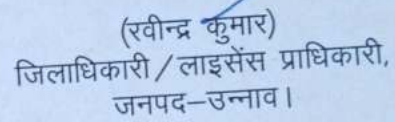 (रवीन्द्र कुमार)
जिलाधिकारी / लाइसेंस प्राधिकारी,
जनपद–उन्नाव।